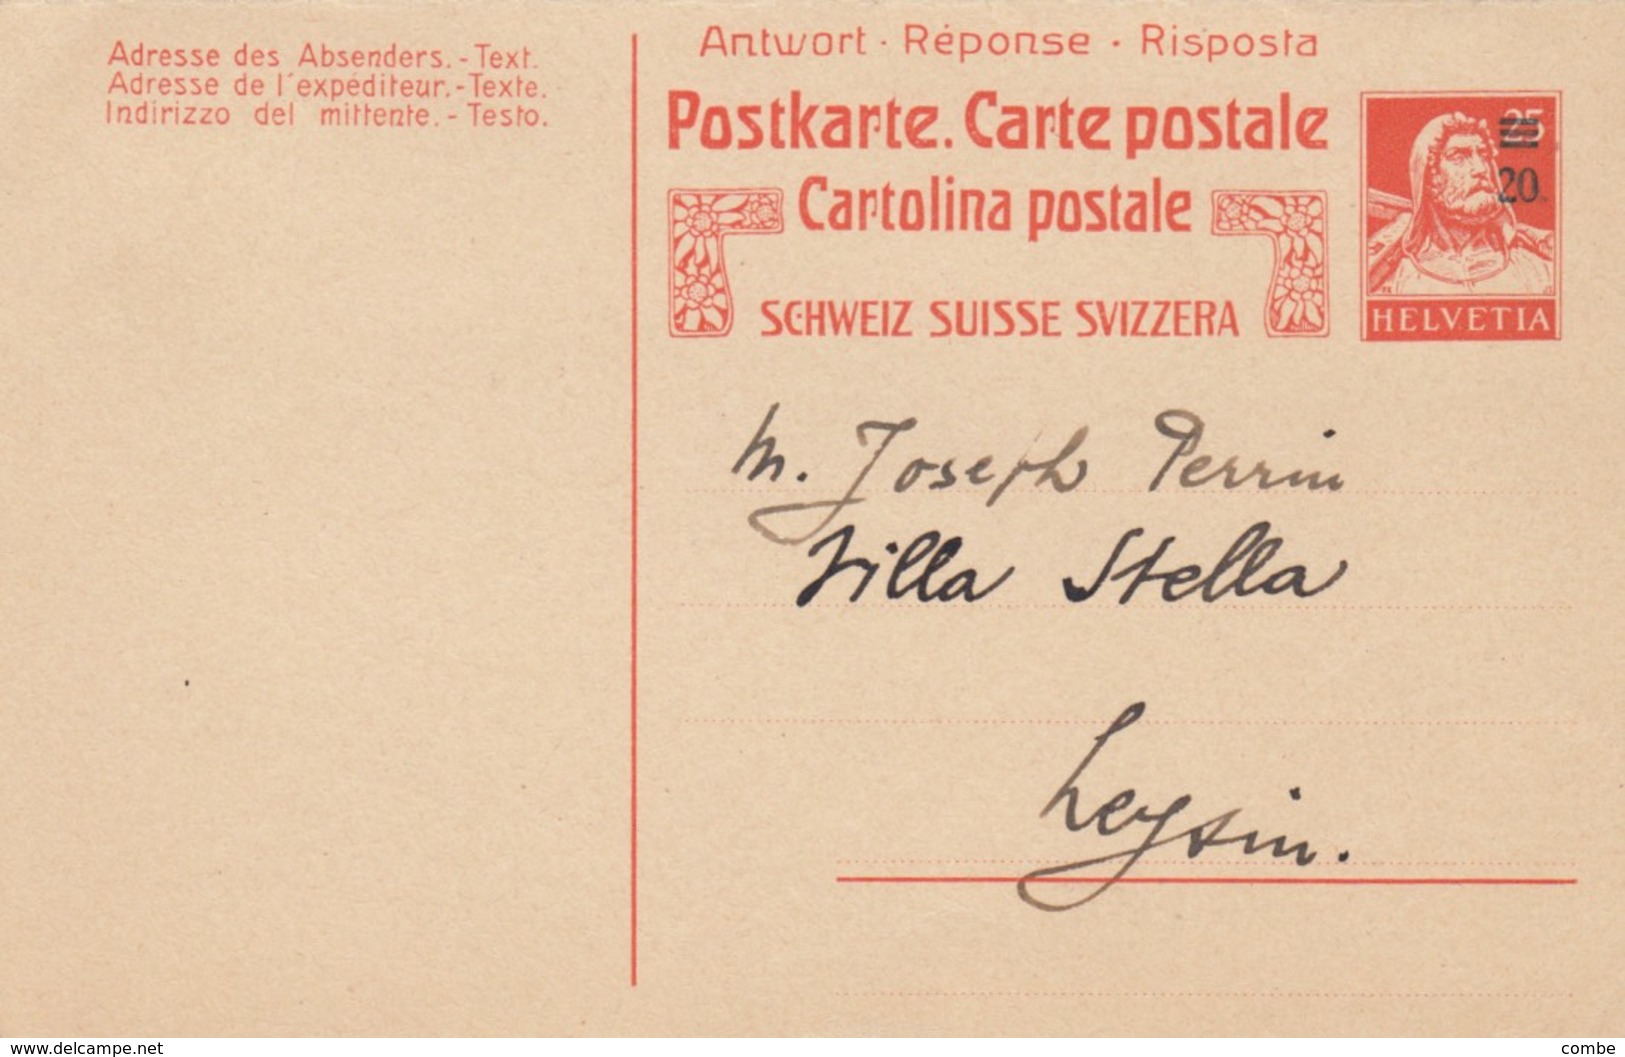 Adresse des Absenders.-Text.
Adresse de l'expéditeur.-Texte.
Indirizzo del mittente.-Testo.
Antwort · Réponse · Risposta
Postkarte. Carte postale
Cartolina postale
SCHWEIZ SUISSE SVIZZERA
25
20
HELVETIA
M. Joseph Perrin
Villa Stella
Leysin.
www.delcampe.net
combe